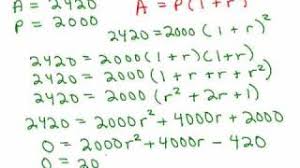 A = 2420 A = P(1+r)²
P = 2000
2420 = 2000(1+r)²
2420 = 2000(1+r)(1+r)
2420 = 2000(1+r+r+r²)
2420 = 2000(r²+2r+1)
2420 = 2000r²+4000r+2000
0 = 2000r²+4000r-420
0 = 20